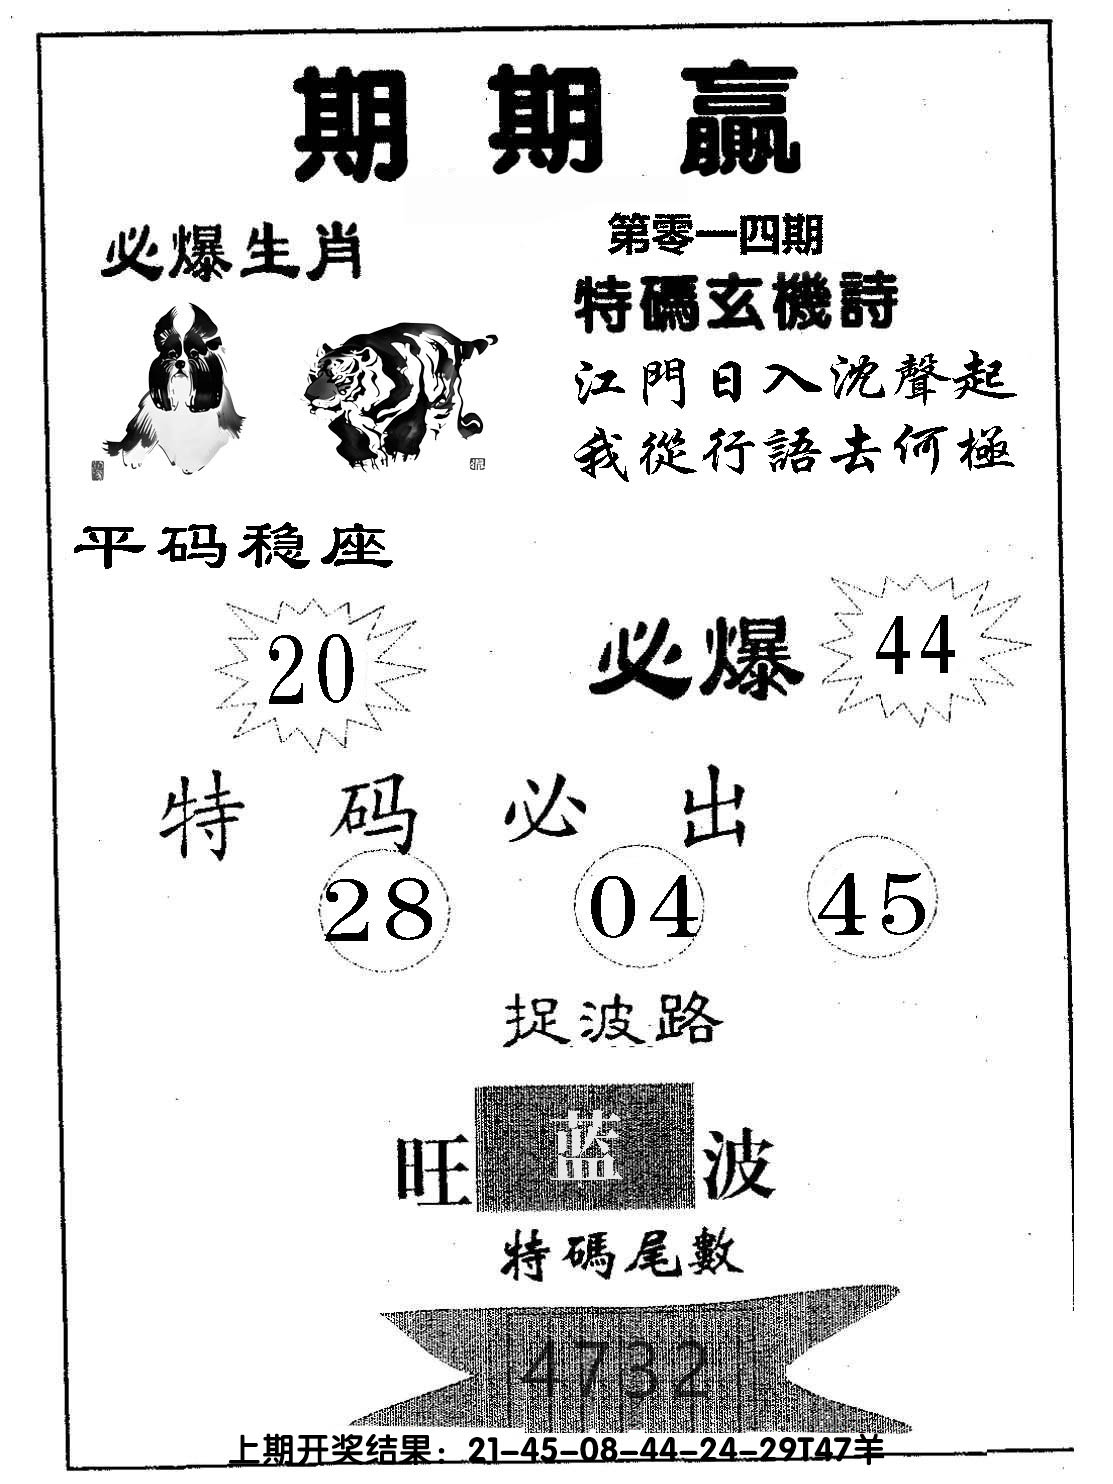 期期贏
必爆生肖
第零一四期
特碼玄機詩
江門日入沈聲起
我從行語去何極
平码稳座
20
必爆 44
特码必出
28 04 45
捉波路
旺蓝波
特碼尾數
4732
上期开奖结果：21-45-08-44-24-29T47羊